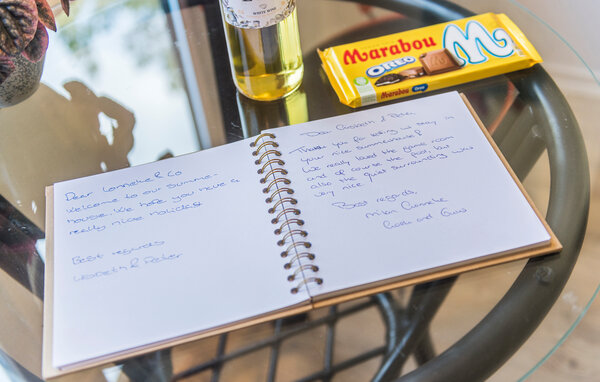 WHITE WINE
Marabou
OREO
M
Marabou OREO
Dear Lonneke & Co
Welcome to our summer-
house. We hope you have a
really nice holiday
Best regards
Lisbeth & Peter
Dear Lisbeth & Peter,
Thank you for letting us stay in
your nice summerhouse!
We really loved the game room
and of course the pool, but
also the quiet surrounding was
very nice
Best regards,
Lonneke
and